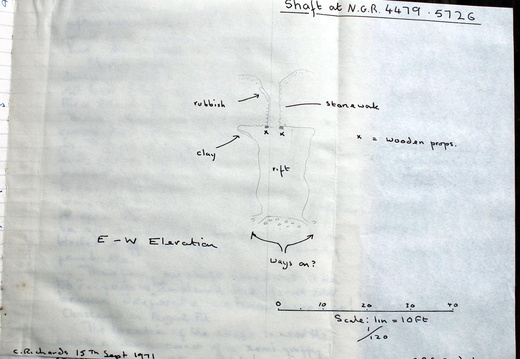 Shaft at N.G.R. 4479.5726
rubbish
stonework
x = wooden props.
x x
clay
rift
E-W Elevation
Ways on?
0 10 20 30 40
Scale: 1in = 10ft
1/120
C. Richards 15TH Sept 1971